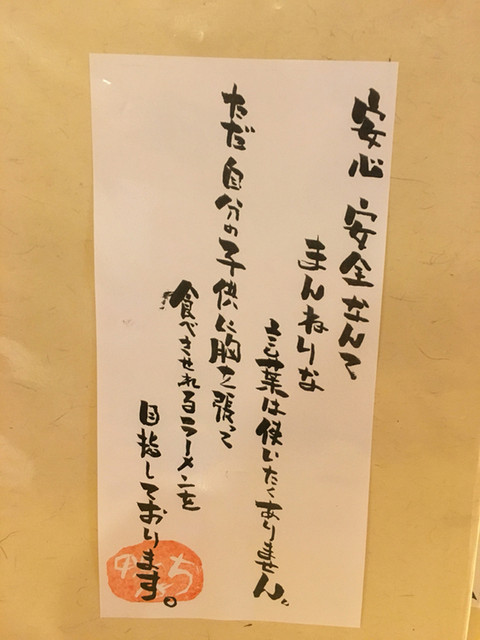 安心 安全なんて
まんねりな
言葉は使いたくありません。
ただ自分の子供に胸を張って
食べさせれるラーメンを
目指しております。